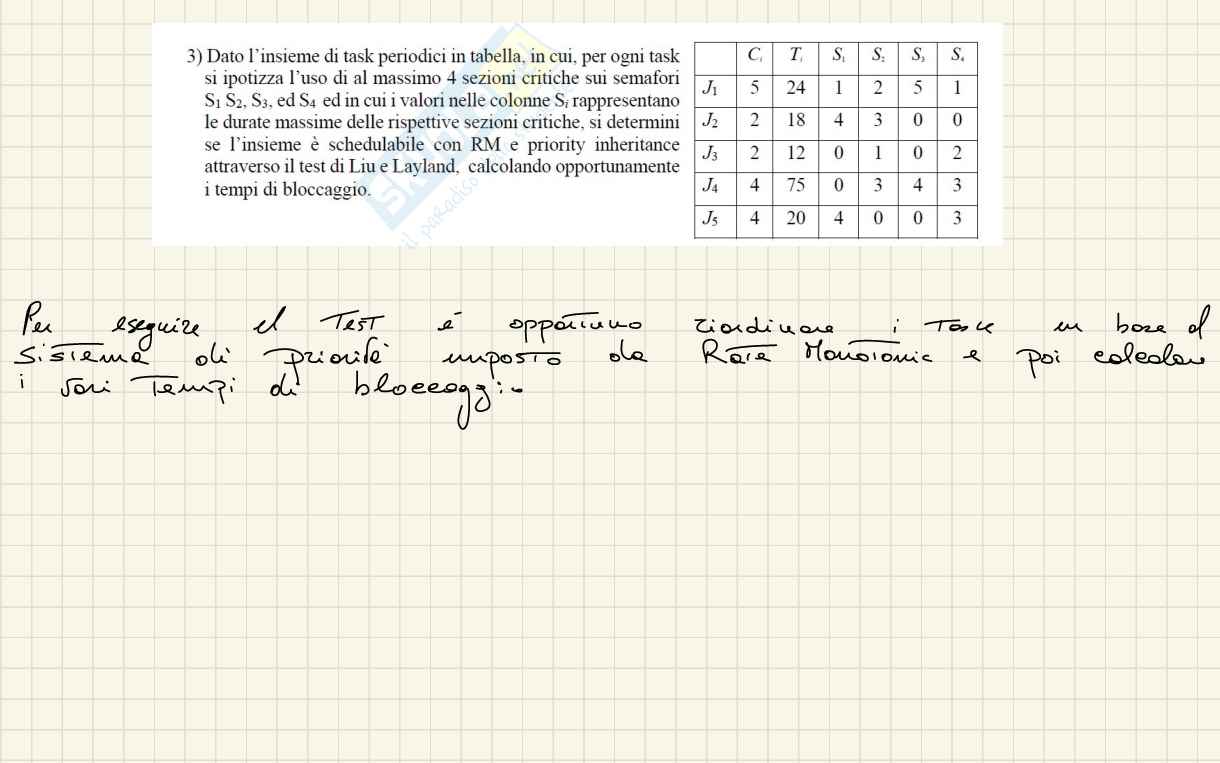 3) Dato l'insieme di task periodici in tabella, in cui, per ogni task
si ipotizza l'uso di al massimo 4 sezioni critiche sui semafori
S₁ S₂, S₃, ed S₄ ed in cui i valori nelle colonne Sᵢ rappresentano
le durate massime delle rispettive sezioni critiche, si determini
se l'insieme è schedulabile con RM e priority inheritance
attraverso il test di Liu e Layland, calcolando opportunamente
i tempi di bloccaggio.
Cᵢ Tᵢ S₁ S₂ S₃ S₄
J₁ 5 24 1 2 5 1
J₂ 2 18 4 3 0 0
J₃ 2 12 0 1 0 2
J₄ 4 75 0 3 4 3
J₅ 4 20 4 0 0 3
il paradiso
Per eseguire il Test è opportuno riordinare i Task in base al
sistema di priorità imposto da Rate Monotonic e poi calcolare
i vari Tempi di bloccaggio